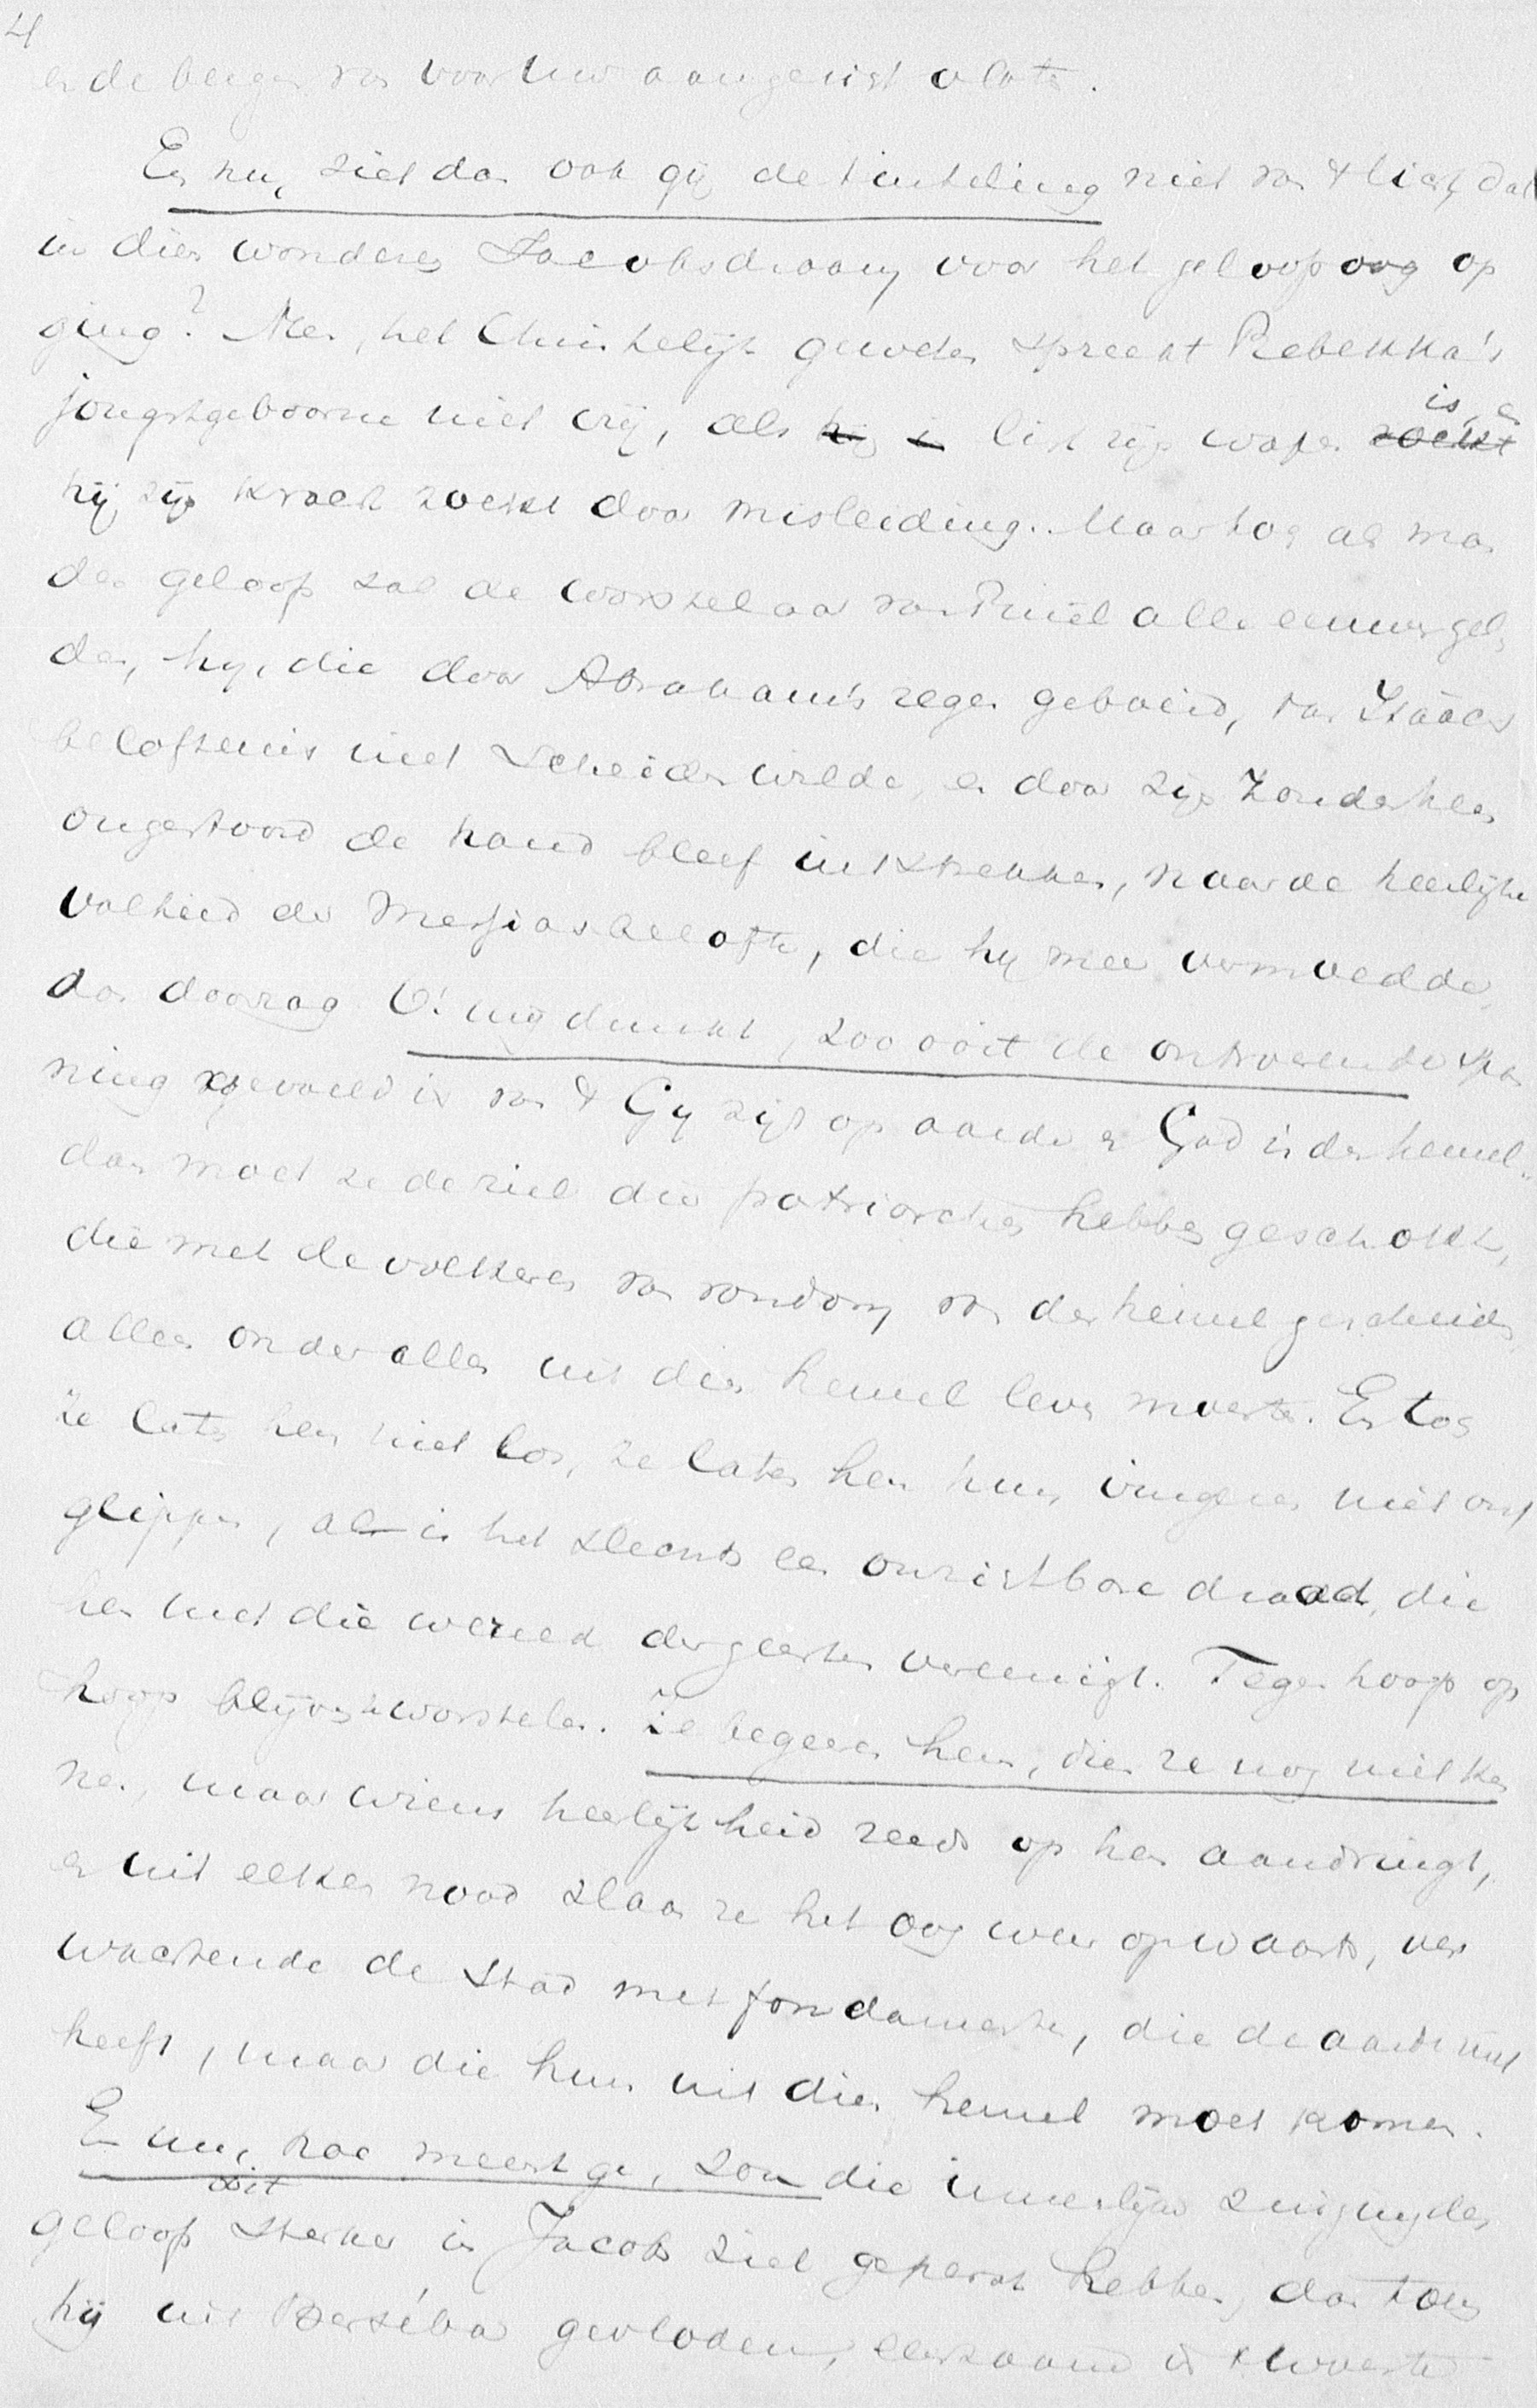 4
en de bergen van voor Uw aangezicht vloten.
En nu, ziet dan ook gij de tinteling niet van 't licht, dat
in dien wonderen Jacobsdroom voor het geloofsoog op
ging? Neen, het Christelijk geweten spreekt Rebekka's
jongstgeboorne niet vrij, als hij in list zijn wapen zoekt is, en
hij zijn kracht zoekt door misleiding. Maar toch als man
des geloofs zal de worstelaar van Pniël alle eeuwen gel
den, hij, die door Abrahams zegen geboeid, van Izaäcs
beloftenis niet scheiden wilde, en door zijn zonden heen
ongestoord de hand bleef uitstrekken, naar de heerlijke
volheid der Messiasbelofte, die hij meer vermoedde,
dan doorzag. O! mij dunkt, zoo ooit de ontroerende span
ning gevoeld is van 't Gij zijt op aarde en God in den hemel"
dan moet ze de ziel dier patriarchen hebben geschokt,
die met de volkeren van rondom van den hemel gescheiden,
alleen onder allen uit dien hemel leven moesten. En toch
ze laten hem niet los, ze laten hem hun vingeren niet ont
glippen, al is het slechts een onzichtbare draad, die
hen met die wereld der geesten vereenigt. Tegen hoop op
hoop blijven ze worstelen. Ze begeeren hem, dien ze nog niet ken
nen, maar wiens heerlijkheid reeds op hen aandringt,
en uit elken nood slaan ze het oog weer opwaarts, ver
wachtende de stad met fondamenten, die de aarde niet
heeft, maar die hun uit dien hemel moet komen.
En nu, hoe meent ge, zou die innerlijke zuiging des
geloofs ooit sterker in Jacobs ziel geperst hebben, dan toen
hij uit Berséba gevloden, eenzaam in 't woeste